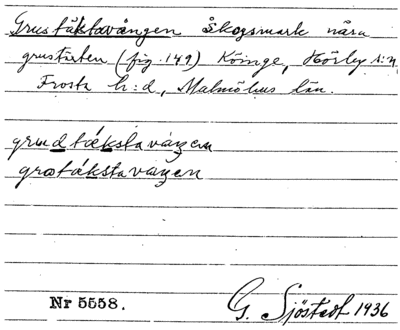 Grustäktavången Skogsmark nära
grustäkten (fig. 149) Köinge, Hörby s:n,
Frosta h:d, Malmöhus län.
grudtäkstavången
grotäkstavången
Nr 5558. G. Sjöstedt 1936